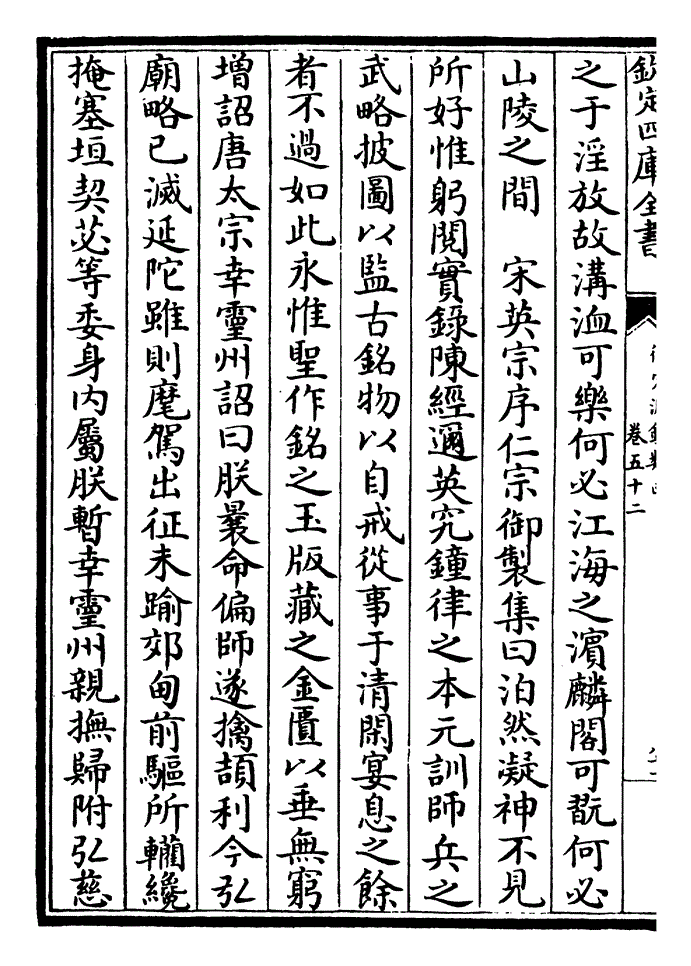 欽定四庫全書
卷五十二
之于淫放故溝洫可樂何必江海之濵麟閣可翫何必
山陵之間　宋英宗序仁宗御製集曰泊然凝神不見
所好惟躬閱實錄陳經邇英究鐘律之本元訓師兵之
武略披圖以監古銘物以自戒從事于清閑宴息之餘
者不過如此永惟聖作銘之玉版藏之金匱以垂無窮
增詔唐太宗幸靈州詔曰朕曩命偏師遂擒頡利今弘
廟略已滅延陀雖則麾駕出征未踰郊甸前驅所轥纔
掩塞垣契苾等委身内屬朕暫幸靈州親撫歸附弘慈